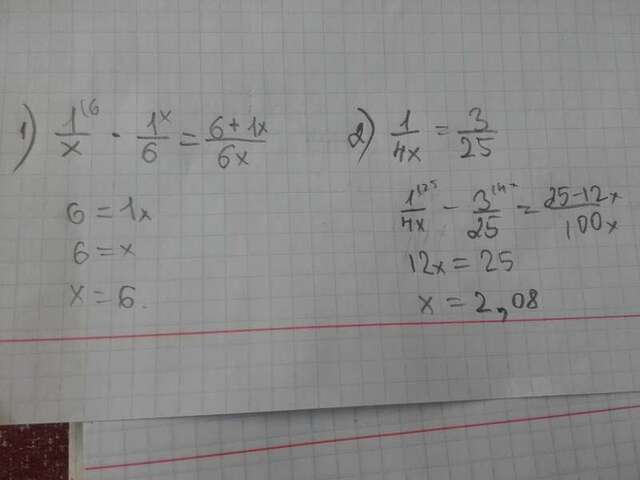 1) 1(6/x - 1x/6 = 6+1x/6x
6 = 1x
6 = x
x = 6.
2) 1/4x = 3/25
1(25/4x - 3(4x/25 = 25-12x/100x
12x = 25
x = 2,08